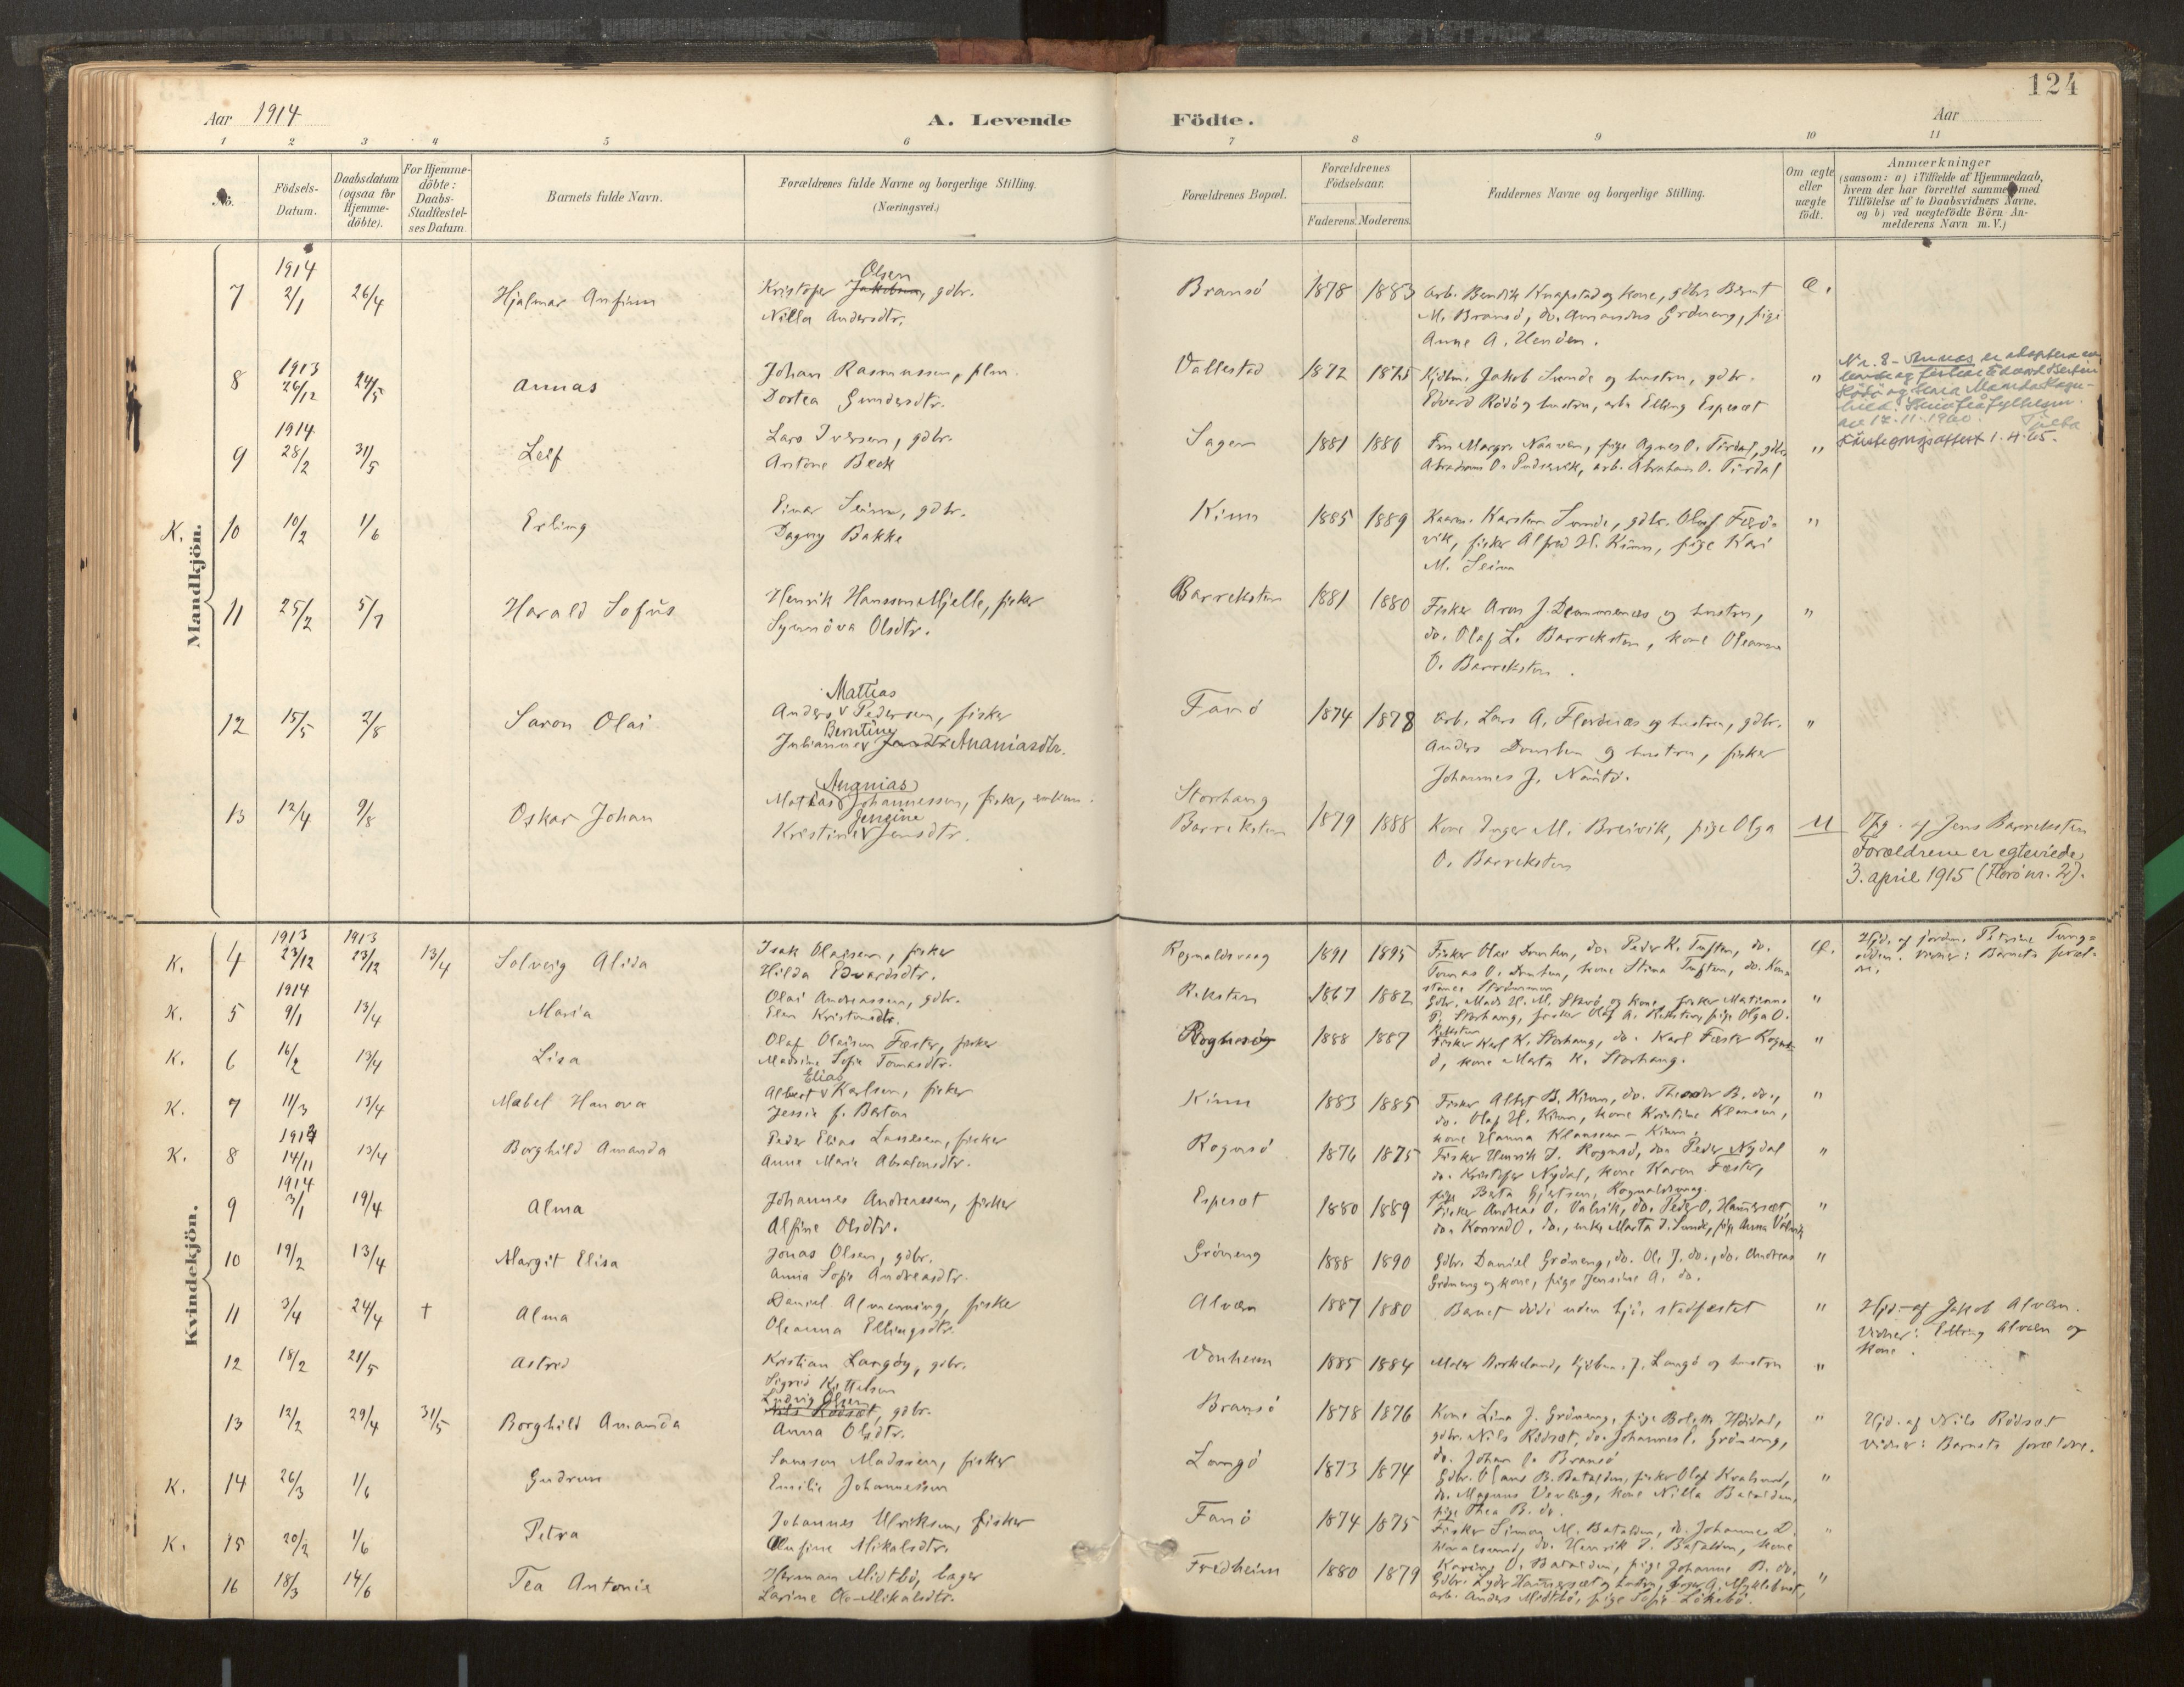 124
Aar 1914
A. Levende Födte.
Aar
1 2 3 4 5 6 7 8 9 10 11
No.
Födsels-Datum.
Daabsdatum (ogsaa for Hjemme-döbte).
For Hjemme-döbte: Daabs-Stadfæstel-ses Datum
Barnets fulde Navn.
Forældrenes fulde Navne og borgerlige Stilling.
(Næringsvei.)
Forældrenes Bopæl.
Forældrenes Födselsaar.
Faderens. Moderens.
Faddernes Navne og borgerlige Stilling.
Om ægte eller uægte födt.
Anmærkninger
(saasom: a) i Tilfælde af Hjemmedaab,
hvem der har forrettet samme med
Tilföielse af to Daabsvidners Navne.
og b) ved uægtefödte Börn An-
melderens Navn m. V.)
Mandkjön.
1914
7 2/1 26/4 Hjalmar Anfinn
Olsen
Kristofer Jakobsen, gdbr.
Nilla Andersdtr.
Bransö 1878 1883
arb. Bendik Knapstad og kone, gdbr. Bernt
M. Bransö, do. Amandus Gröneng, pige
Anne A. Hendön.
Æ.
1913
8 26/12 24/5 Annas
Johan Rasmussen, plm.
Dortea Gundersdtr.
Vallestad 1872 1875
Kjöbm. Jakob Sunde og hustru, gdbr.
Edvard Rödö og hustru, arb. Elling Espeset
"
Nr. 8 - Annas er
17.11.1960
1914
9 28/2 31/5 Leif
Lars Iversen, gdbr.
Antone Beck
Sagen 1881 1886
Fru Margr. Naaven, pige Agnes O. Tirdal, gdbr.
Abraham O. Indrevik, arb. Abraham O. Tirdal
"
1.4.65.
K. 10 10/2 1/6 Erling
Einar Seim, gdbr.
Dagny Bakke
Kinn 1885 1889
Karsten Sunde, gdbr. Olaf Færö-
vik, fisker Alfred H. Kinn, pige Kari
M. Seim
"
11 25/2 5/7 Harald Sofus
Henrik Hanssen Mjelle, fisker
Synnöva Olsdtr.
Barreksten 1881 1880
Fisker Aron J. Demmenæs og hustru,
do. Olaf L. Barreksten, kone Oleanna
O. Barreksten.
"
12 15/5 2/8 Saron Olai
Mattias
Anders v Pedersen, fisker
Berntine
Julianne v Ananiasdtr.
Fanö 1874 1878
arb. Lars A. Florenæs og hustru, gdbr.
Anders Domben og hustru, fisker
Johannes J. Nautö.
"
13 12/4 9/8 Oskar Johan
(Ananias)
Mattias Johannessen, fisker, enkem.
Jensine
Kristine v Jensdtr.
Storhaug
Barreksten 1879 1888
Kone Inger M. Breivik, pige Olga
O. Barreksten
U
Opg. af Jens Barreksten
Forældrene er egteviede
3. april 1915 (Florö nr. 2).
Kvindekjön.
1913 1913
K. 4 23/12 23/12 13/4 Solveig Alida
Isak Olaisen, fisker
Hilda Edvardsdtr.
Rognaldsvaag 1891 1895
Fisker Olai Domben, do. Peder K. Tuften, do.
Tomas O. Domben, kone Stina Tuften, do. Kon-
stance Strömmen
Æ.
Hjd. af jordm. Petrine Tung-
odden. Vidner: Barnets foræl-
dre.
1914
K. 5 9/1 13/4 Maria
Olai Andreassen, gdbr.
Elen Kristensdtr.
Reksten 1867 1882
Gdbr. Mads H. M. Skorö og kone, fisker Matias
P. Storhaug, fisker Olaf A. Reksten, pige Olga O.
Reksten
"
K. 6 16/2 13/4 Lisa
Olaf Olaisen Fæster, fisker
Madsine Sofie Tomasdtr.
Rognesöy 1888 1887
Fisker Karl K. Storhaug, do. Karl Fæster Rognes-
ö, kone Marta K. Storhaug.
"
K. 7 11/3 13/4 Mabel Hanora
Elias
Albert v Karlsen, fisker
Jessie f. Barton
Kinn 1883 1885
Fisker Albert B. Kinn, do. Theodor B. do.,
do. Olaf H. Kinn, kone Kristine Klausen,
kone Hanna Klausen - Kinn.
"
1913
K. 8 14/11 13/4 Borghild Amanda
Peder Elias Larsen, fisker
Anne Marie Absalonsdtr.
Rognsö 1876 1875
Fisker Henrik J. Rognsö, do. Peder Nydal
do. Kristofer Nydal, kone Karen Fæster,
pige Berta Gjertsen, Rognaldsvaag.
"
1914
9 3/1 19/4 Alma
Johannes Andreassen, fisker
Alfine Olsdtr.
Espeset 1880 1889
Fisker Andreas O. Valvik, do. Peder O. Hammersæt,
do. Konrad O. do., enke Marta J. Sunde, pige Anna Valvik
"
10 19/2 13/4 Margit Elisa
Jonas Olsen, gdbr.
Anna Sofie Andreasdtr.
Gröneng 1888 1890
Gdbr. Daniel Gröneng, do. Ole J. do., do. Andreas
Gröneng og kone, pige Jensine A. do.
"
11 3/4 24/4 † Alma
Daniel Almenning, fisker
Oleanna Ellingsdtr.
Alvæn 1887 1880
Barnet döde uden hjd. stadfæstet
"
Hjd. af Jakob Alvæn.
Vidner: Elling Alvæn og
kone.
12 18/2 21/5 Astrid
Kristian Langöy, gdbr.
Sigrid Kittelsen
Vonheim 1885 1884
Maler Birkeland, kjöbm. J. Langö og hustru
"
13 12/2 29/4 31/5 Borghild Amanda
Ludvig Olsen
Nils Rödset, gdbr.
Anna Olsdtr.
Bransö 1878 1876
Kone Lina J. Gröneng, pige Bolette Höidal,
gdbr. Nils Rödset, do. Johannes P. Gröneng,
do. Johan P. Bransö
"
Hjd. af Nils Rödset
Vidner: Barnets forældre.
K. 14 26/3 1/6 Gudrun
Samson Madssen, fisker
Emilie Johannessen
Langö 1873 1874
Gdbr. Olaus B. Batalden, fisker Olaf Kvalsund,
do. Magnus Vevling, kone Nilla Batalden,
pige Thea B. do.
"
K. 15 20/2 1/6 Petra
Johannes Ulriksen, fisker
Anfine Mikalsdtr.
Fanö 1874 1875
Fisker Simon M. Batalden, do. Johannes D.
do. Henrik J. Batalden, kone
Karine O. Batalden, pige Johanne B. do.
"
16 18/3 14/6 Tea Antonie
Herman Midtbö, bager
Larine O. Mikalsdtr.
Fredheim 1880 1879
Gdbr. Lyder Hammersæt og hustru, Myklebust,
arb. Anders Midtbö, pige Sofie Lökebö.
"